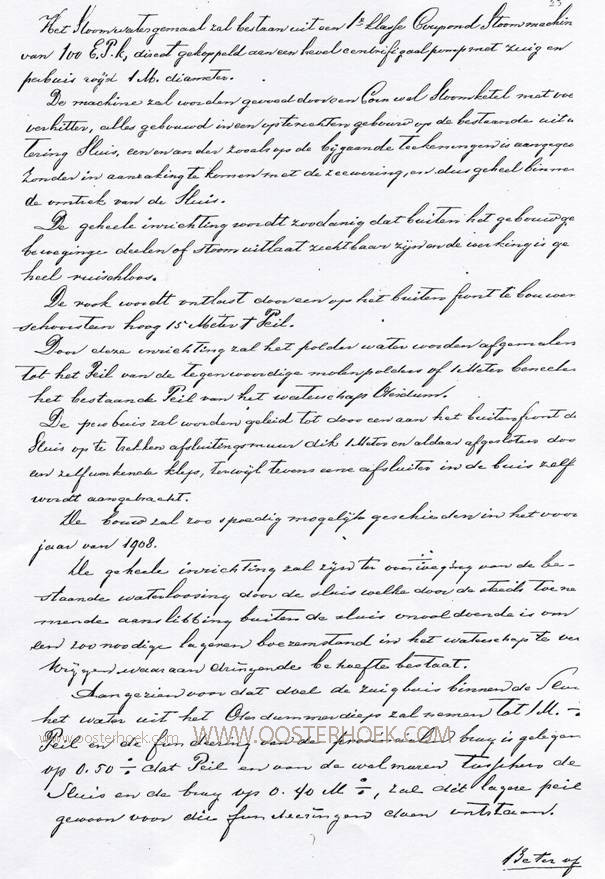 23
Het Stoomwatergemaal zal bestaan uit een 1e Klasse Coupond Stoommachin
van 100 E.P.k, direct gekoppeld aan een hevel centrifigaalpomp met zuig en
persbuis wijd 1 M. diameter.
De machine zal worden gevoed door een Cornwel Stoomketel met voor
verhitter, alles gebouwd in een op te rechten gebouw op de bestaande uitwa
tering Sluis, een en ander zooals op de bijgaande teekeningen is aangegeve
zonder in aanraking te komen met de zeewering, en dus geheel binnen
de omtrek van de Sluis.
De geheele inrichting wordt zoodanig dat buiten het gebouw ge
beweginge deelen of stoomuitlaat zechtbaar zijn en de werking is ge
heel ruischloos.
De rook wordt ontlast door een op het buiten front te bouwen
schoorsteen hoog 15 Meter + Peil.
Door deze inrichting zal het polder water worden afgemalen
tot het Peil van de tegenwoordige molenpolders of 1 Meter beneden
het bestaande Peil van het waterschap Oterdum.
De persbuis zal worden geleid tot door een aan het buitenfront de
Sluis op te trekken afsluitingsmuur dik 1 Meter en aldaar afgesloten doo
een zelfwerkende klep, terwijl tevens eene afsluiter in de buis zelf
wordt aangebracht.
De bouw zal zoo spoedig mogelijk geschieden in het voor
jaar van 1908.
De geheele inrichting zal zijn ter overweging van de be-
staande waterlossing door de sluis welke door de steeds toene
mende aanslibbing buiten de sluis onvoldoende is om
een zoo noodige lageren boezemstand in het waterschap te ver
krijgen, waaraan dringende behoefte bestaat.
Aangezien voor dat doel de zuigbuis binnen de Slui
het water uit het Oterdummerdiep zal nemen tot 1 M. ÷
Peil en de fundeering van de brug is gelegen
op 0.50 ÷ dat Peil en van de walmuren tusschen de
Sluis en de brug op 0.40 M ÷, zal dit lagere peil
gevaar voor die fundeeringen doen ontstaan.
Beter op
www.oosterhoek.com
WWW.OOSTERHOEK.COM